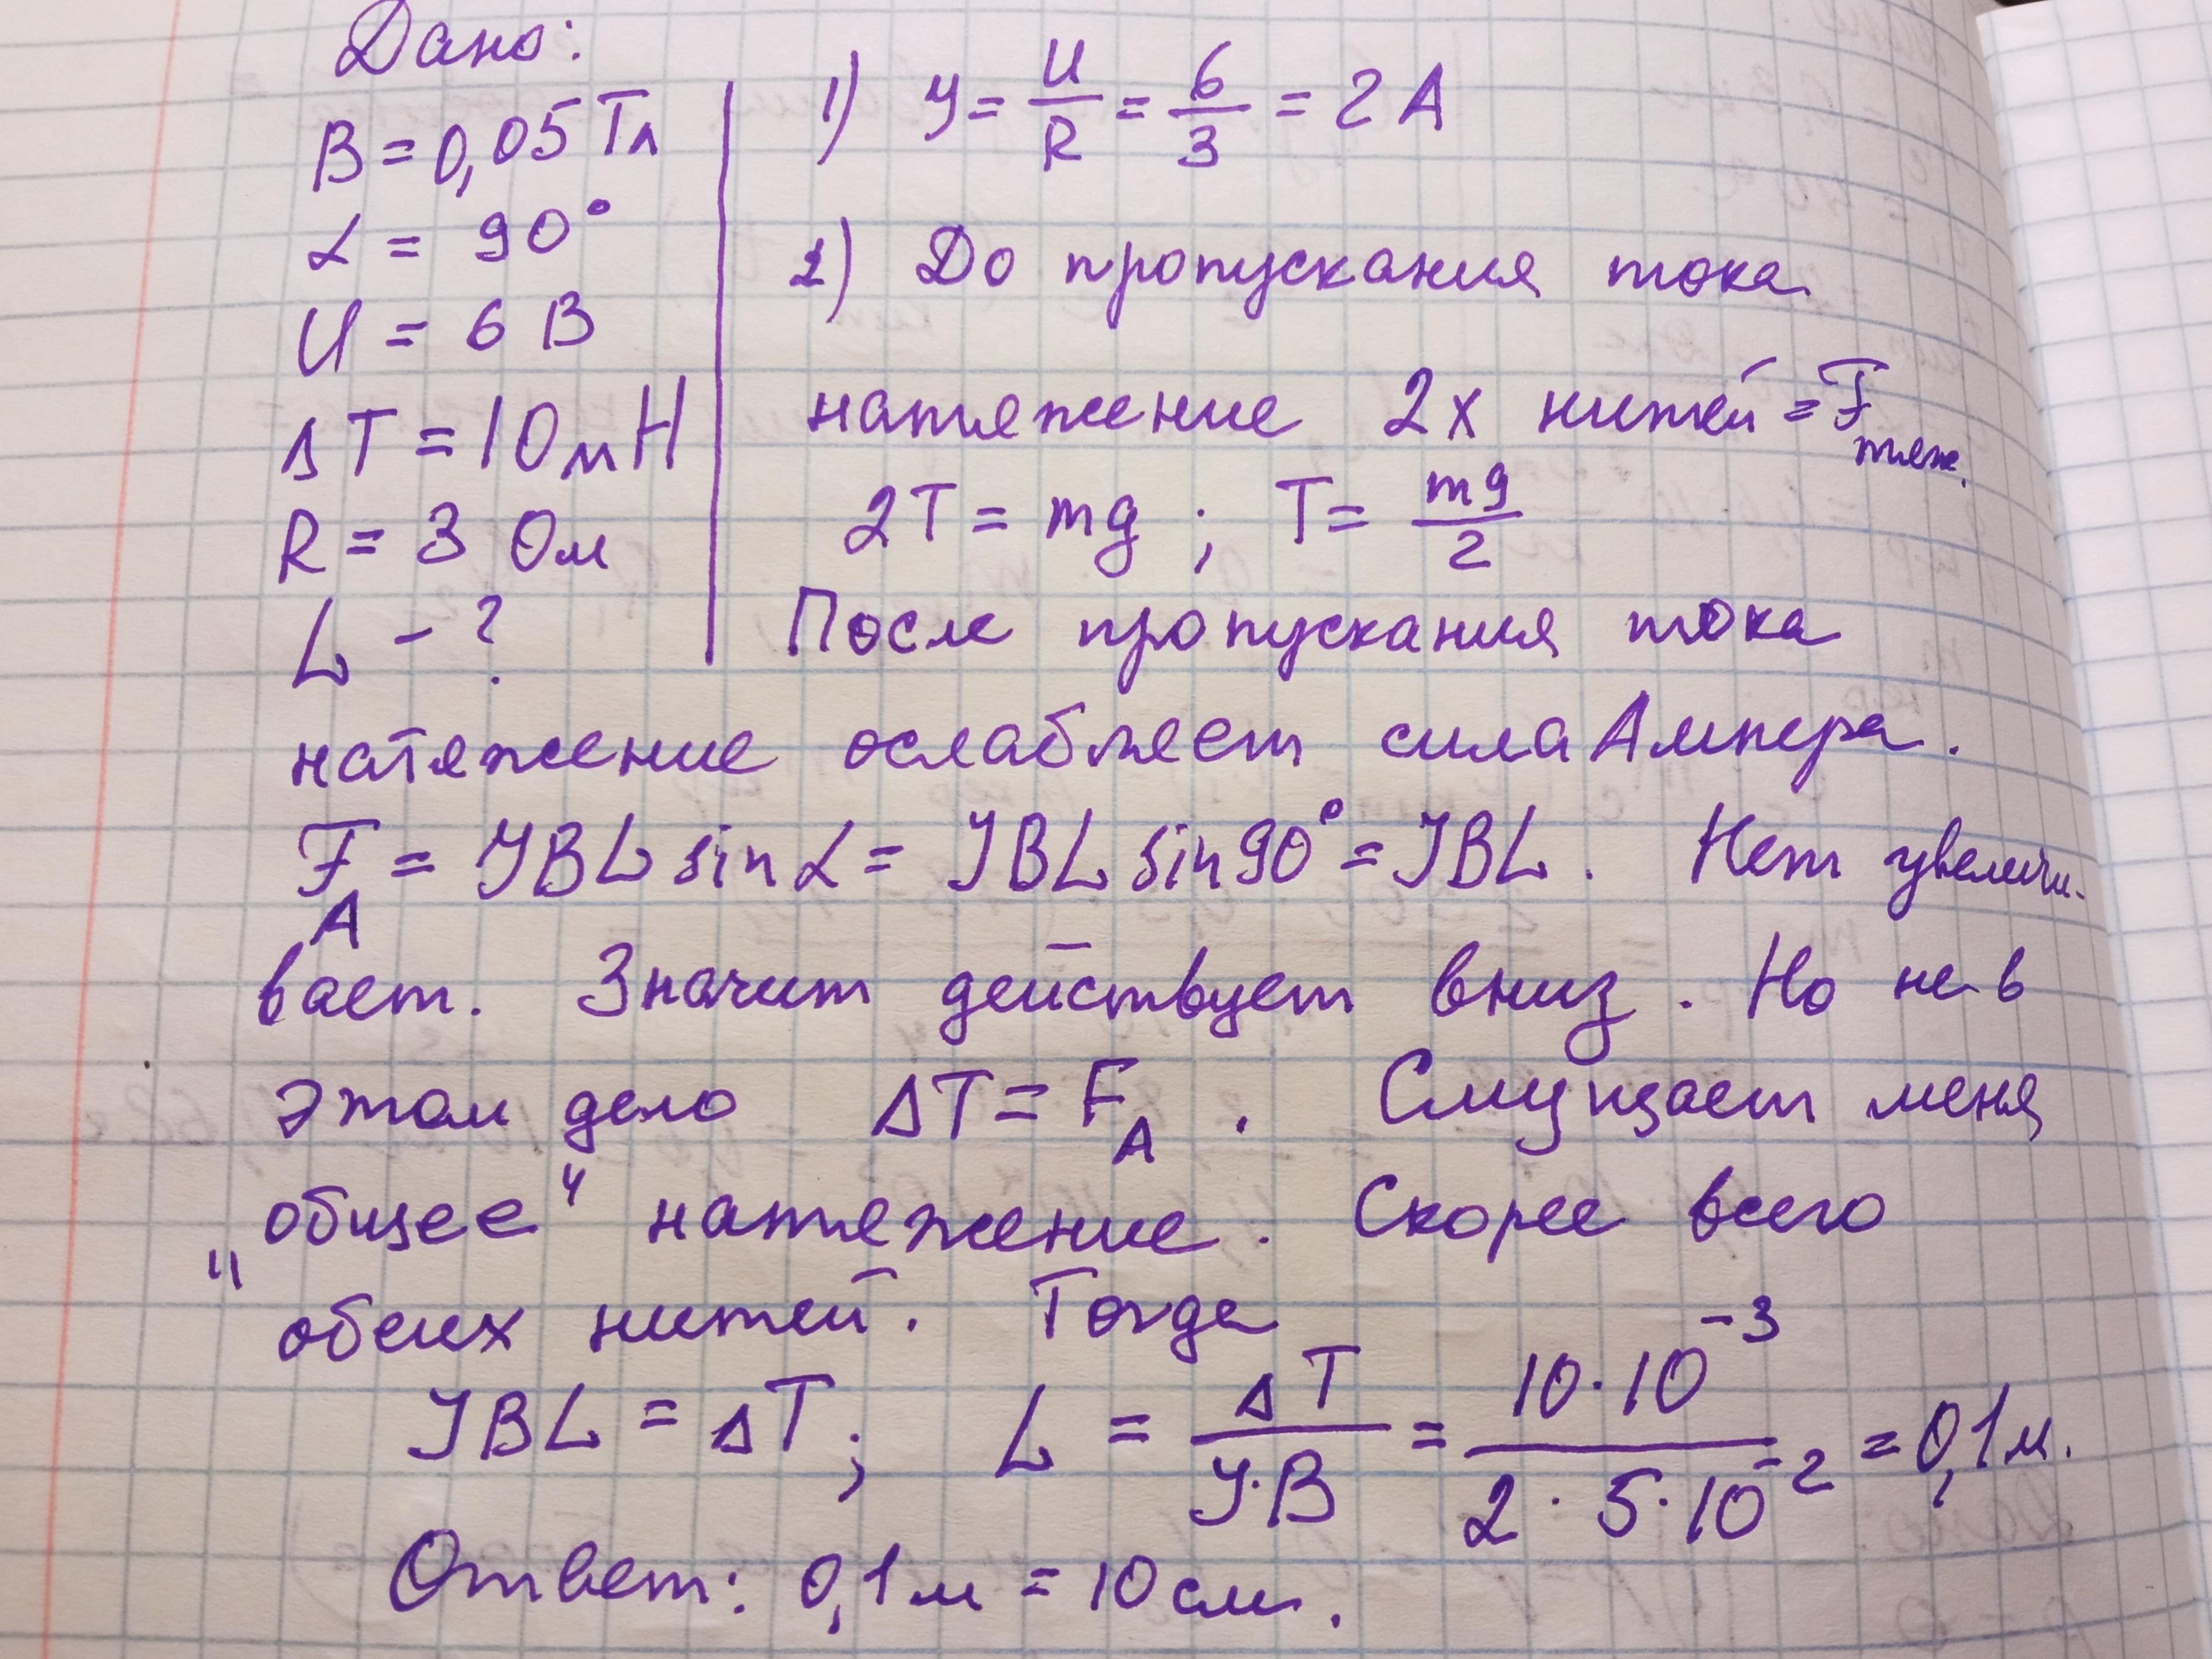 Дано:
B = 0,05 Тл
α = 90°
U = 6 В
ΔT = 10 мН
R = 3 Ом
L - ?
1) J = U/R = 6/3 = 2 A
2) До пропускания тока
натяжение 2х нитей = F тяж.
2T = mg ; T = mg/2
После пропускания тока
натяжение ослабляет сила Ампера.
F_A = JBL sin α = JBL sin 90° = JBL . Нет увеличи-
вает. Значит действует вниз. Но не в
этом дело ΔT = F_A . Смущает меня
"общее" натяжение. Скорее всего
обеих нитей. Тогда
JBL = ΔT ; L = ΔT/J·B = 10·10⁻³/2·5·10⁻² = 0,1 м.
Ответ: 0,1 м = 10 см.